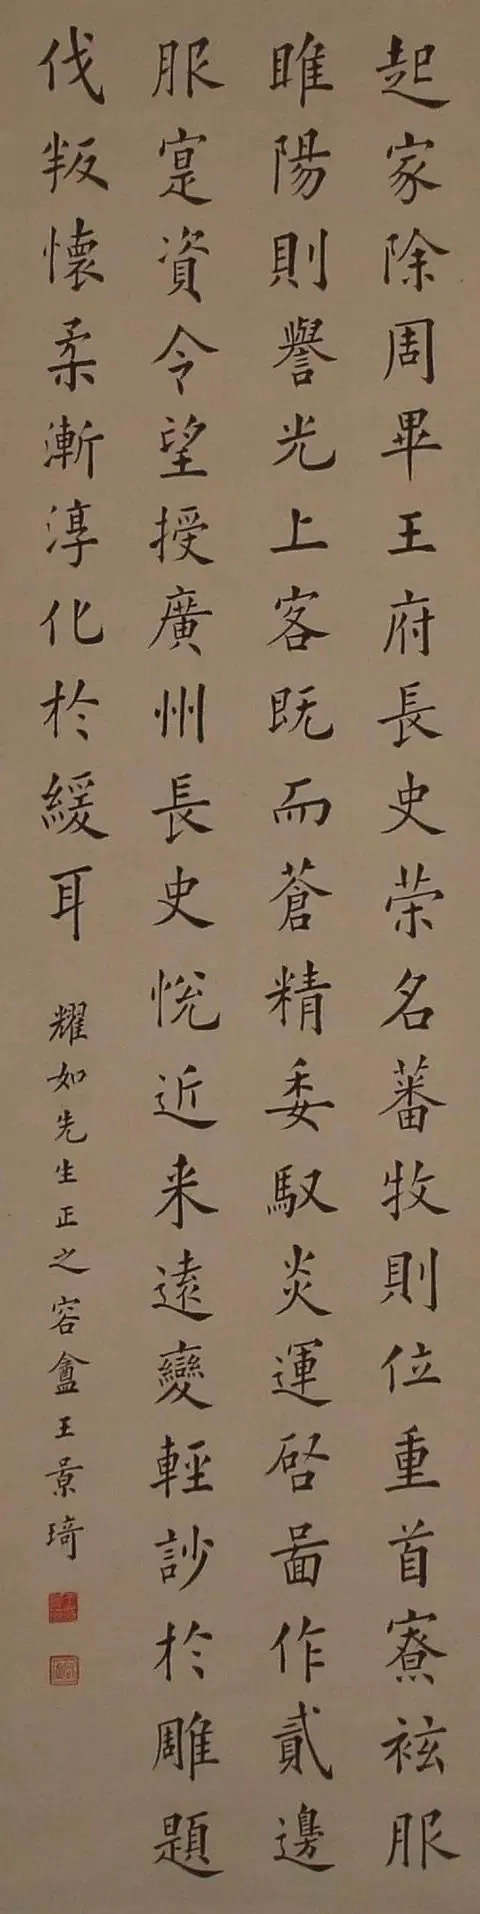 起家除周畢王府長史荣名蕃牧則位重首寮袨服
睢陽則譽光上客既而蒼精委馭炎運啓啚作貳邊
服寔資令望授廣州長史悦近来遠變輕訬於雕題
伐叛懷柔漸淳化於緩耳
耀如先生正之容盦王景琦